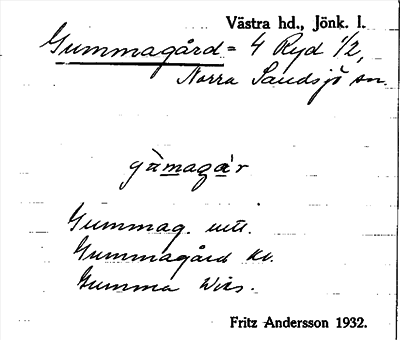 Västra hd., Jönk. l.
Gummagård = 4 Ryd 1/2,
Norra Sandsjö sn.
gùmagàr
Gummag. utt.
Gummagård kv.
Gumma Wies.
Fritz Andersson 1932.